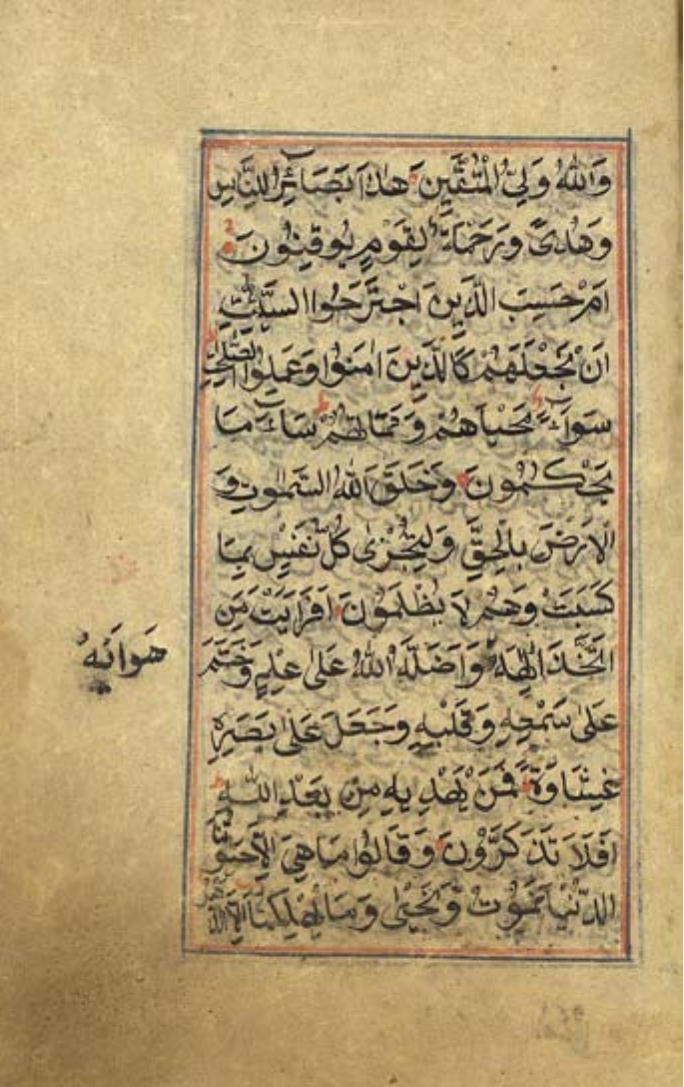 وَاللّٰهُ وَلِيُّ الْمُتَّقِينَ هٰذَا بَصَائِرُ لِلنَّاسِ
وَهُدًى وَرَحْمَةٌ لِقَوْمٍ يُوقِنُونَ
اَمْ حَسِبَ الَّذِينَ اجْتَرَحُوا السَّيِّاٰتِ
اَنْ نَجْعَلَهُمْ كَالَّذِينَ اٰمَنُوا وَعَمِلُوا الصّٰلِحٰتِ
سَوَاءً مَحْيَاهُمْ وَمَمَاتُهُمْ سَاءَ مَا
يَحْكُمُونَ وَخَلَقَ اللّٰهُ السَّمٰوٰتِ وَ
الْاَرْضَ بِالْحَقِّ وَلِتُجْزٰى كُلُّ نَفْسٍ بِمَا
كَسَبَتْ وَهُمْ لَا يُظْلَمُونَ اَفَرَاَيْتَ مَنِ
اتَّخَذَ اِلٰهَهُ وَاَضَلَّهُ اللّٰهُ عَلٰى عِلْمٍ وَخَتَمَ
هَوَايهُ
عَلٰى سَمْعِهِ وَقَلْبِهِ وَجَعَلَ عَلٰى بَصَرِهِ
غِشَاوَةً فَمَنْ يَهْدِيهِ مِنْ بَعْدِ اللّٰهِ
اَفَلَا تَذَكَّرُونَ وَقَالُوا مَا هِيَ اِلَّا حَيٰوتُنَا
الدُّنْيَا نَمُوتُ وَنَحْيٰى وَمَا يُهْلِكُنَا اِلَّا الدَّهْرُ